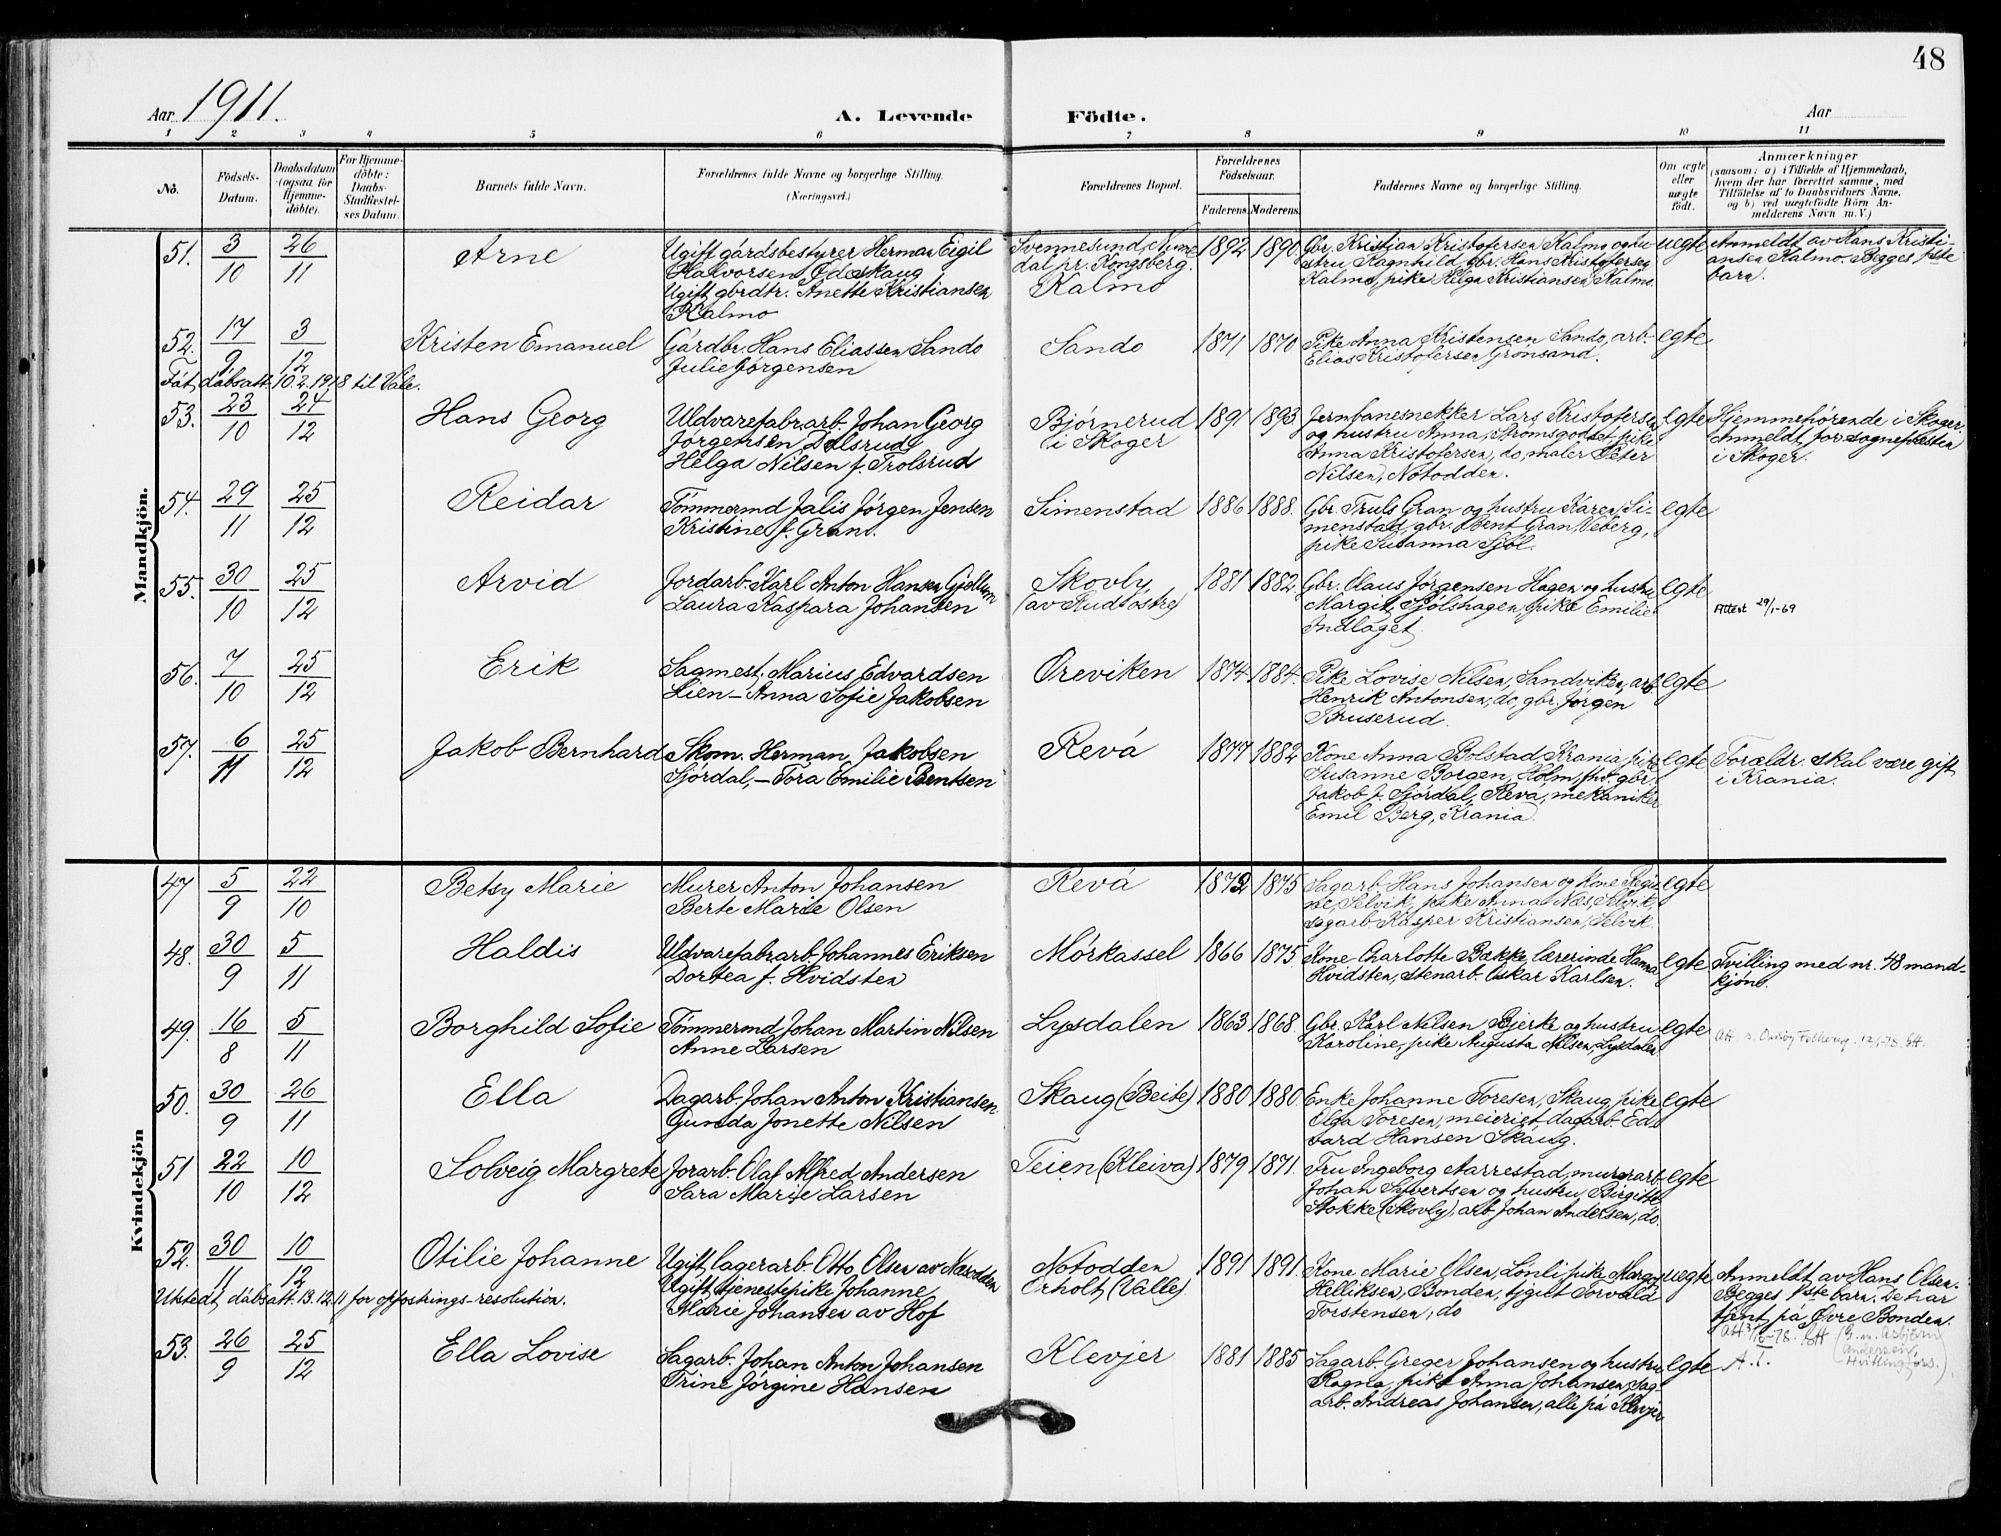 48
Aar 1911.
A. Levende Födte.
Aar
1 2 3 4 5 6 7 8 9 10 11
No.
Födsels-Datum.
Daabsdatum (ogsaa for Hjemme-döbte).
For Hjemme-döbte: Daabs-Stadfæstel-ses Datum.
Barnets fulde Navn.
Forældrenes fulde Navne og borgerlige Stilling.
(Næringsvei.)
Forældrenes Bopæl.
Forældrenes Födselsaar.
Faderens. Moderens.
Faddernes Navne og borgerlige Stilling.
Om ægte eller uægte födt.
Anmærkninger
(saasom: a) i Tilfælde af Hjemmedaab,
hvem der har forrettet samme, med
Tilföielse af to Daabsvidners Navne,
og b) ved uægtefödte Börn An-
melderens Navn m. V.)
Mandkjön.
51. 3/10 26/11 Arne
Ugift gårdsbestyrer Herman Eigil
Halvorsen Ødeskaug
Ugift gbrdtr. Anette Kristiansen
Kalmo
Svennesund, Nume
dal pr. Kongsberg.
Kalmo
1892 1890
Gbr. Kristian Kristofersen Kalmo og hu
stru Ragnhild, gbr. Hans Kristofersen
Kalmo, pike Helga Kristiansen Kalmo.
uegte
Anmeldt av Hans Kristi-
ansen Kalmo. Begges 1ste
barn.
52. 17/9 3/12 Kristen Emanuel
Gårdbr. Hans Eliassen Sando
Julie Jørgensen
Sando
1871 1870
Pike Anna Kristensen Sando, arb.
Elias Kristofersen Grønsand.
egte
Fåt dåbsatt. 10.2.1918 til Våle.
53. 23/10 24/12 Hans Georg
Uldvarefabrarb. Johan Georg
Jørgensen Dalsrud
Helga Nilsen f. Trolsrud
Bjørnerud
i Skoger
1891 1893
Jernbanesnekker Lars Kristofersen
og hustru Anna, Strømsgodset, pike
Anna Kristofersen, do, maler Peter
Nilsen, Notodden.
egte
Hjemmehørende i Skoger.
Anmeldt for sogneprესten
i Skoger.
54. 29/11 25/12 Reidar
Tømmermd Jalis Jørgen Jensen
Kristine f. Gran.
Simenstad
1886 1888.
Gbr. Truls Gran og hustru Karen, Si-
menstad, gbr. Bent Gran, Veberg,
pike Susanna Sjøl.
egte
55. 30/10 25/12 Arvid
Jordarb. Karl Anton Hansen Gjellum
Laura Kaspara Johansen
Skovly
(av Rud østre)
1881 1882
Gbr. Claus Jørgensen Hagen og hustru
Margit, Sjølshagen, pike Emilie
Indlaget.
egte
Attest 29/1-69
56. 7/10 25/12 Erik
Sagmest. Marius Edvardsen
Lien - Anna Sofie Jakobsen
Øreviken
1874 1884.
Pike Lovise Nilsen, Sandviken, arb
Henrik Antonsen, do, gbr. Jørgen
Bruserud.
egte
57. 6/11 25/12 Jakob Bernhard
Skom. Herman Jakobsen
Sjørdal, - Tora Emilie Bentsen
Revå
1877 1882
Kone Anna Bolstad, Krania, pike
Susanne Borgen, Holm, fhv. gbr.
Jakob J. Sjørdal, Revå, mekaniker
Emil Berg, Krania.
egte
Forældr. skal være gift
i Krania.
Kvindekjön
47 5/9 22/10 Betsy Marie
Murer Anton Johansen
Berte Marie Olsen
Revå
1872 1875
Sagarb. Hans Johansen og kone Regi
ne, Selvik, pike Anna Næs, Selvik,
sagarb. Kasper Kristiansen, Selvik.
egte
48. 30/9 5/11 Haldis
Uldvarefabrarb. Johannes Eriksen
Dortea f. Hvidsten
Mørkassel
1866 1875.
Kone Charlotte Bække, lærerinde Hanna
Hvidsten, stenarb. Oskar Karlsen.
egte
Tvilling med nr. 48 mand-
kjøn.
49. 16/8 5/11 Borghild Sofie
Tømmermd Johan Martin Nilsen
Anne Larsen
Lysdalen
1863 1868.
Gbr. Karl Nilsen Bjerke og hustru
Karoline, pike Augusta Nilsen, Lysdalen
egte
50. 30/9 26/11 Ella
Dagarb. Johan Anton Kristiansen
Gunda Jonette Nilsen
Skaug (Beite)
1880 1880.
Enke Johanne Toresen, Skaug, pike
Olga Toresen, meieriet, dagarb. Ed-
vard Hansen Skaug.
egte
51 22/10 10/12 Solveig Margrete
Jorarb. Olaf Alfred Andersen
Sara Marie Larsen
Teien (Kleiva)
1879 1871.
Fru Ingeborg Aarrestad, murerarb.
Johan Syvertsen og hustru Birgitte
Stokke (Skovly), arb Johan Andersen, do.
egte
52. 30/11 10/12 Otilie Johanne
Ugift lagerarb. Otto Olsen av Næsodden
Ugift tjenestepike Johanne
Marie Johansen av Hof
Notodden
Erholt (Valle)
1891 1891.
Kone Marie Olsen, Lønli, pike Margy
Helliksen, Bonden, tjgut Torvald
Torstensen, do
uegte
Anmeldt av Hans Olsen.
Begges 1ste barn. De har
tjent på Øvre Bonden.
Utstedt dåbsatt. 13.12.11 for opfostrings-resolution.
53. 26/9 25/12 Ella Lovise
Sagarb. Johan Anton Johansen
Trine Jørgine Hansen
Klevjer
1881 1885
Sagarb. Greger Johansen og hustru
Ragna, pike Anna Johansen, sag-
arb. Andreas Johansen, alle på Klevjer
egte
A.T.